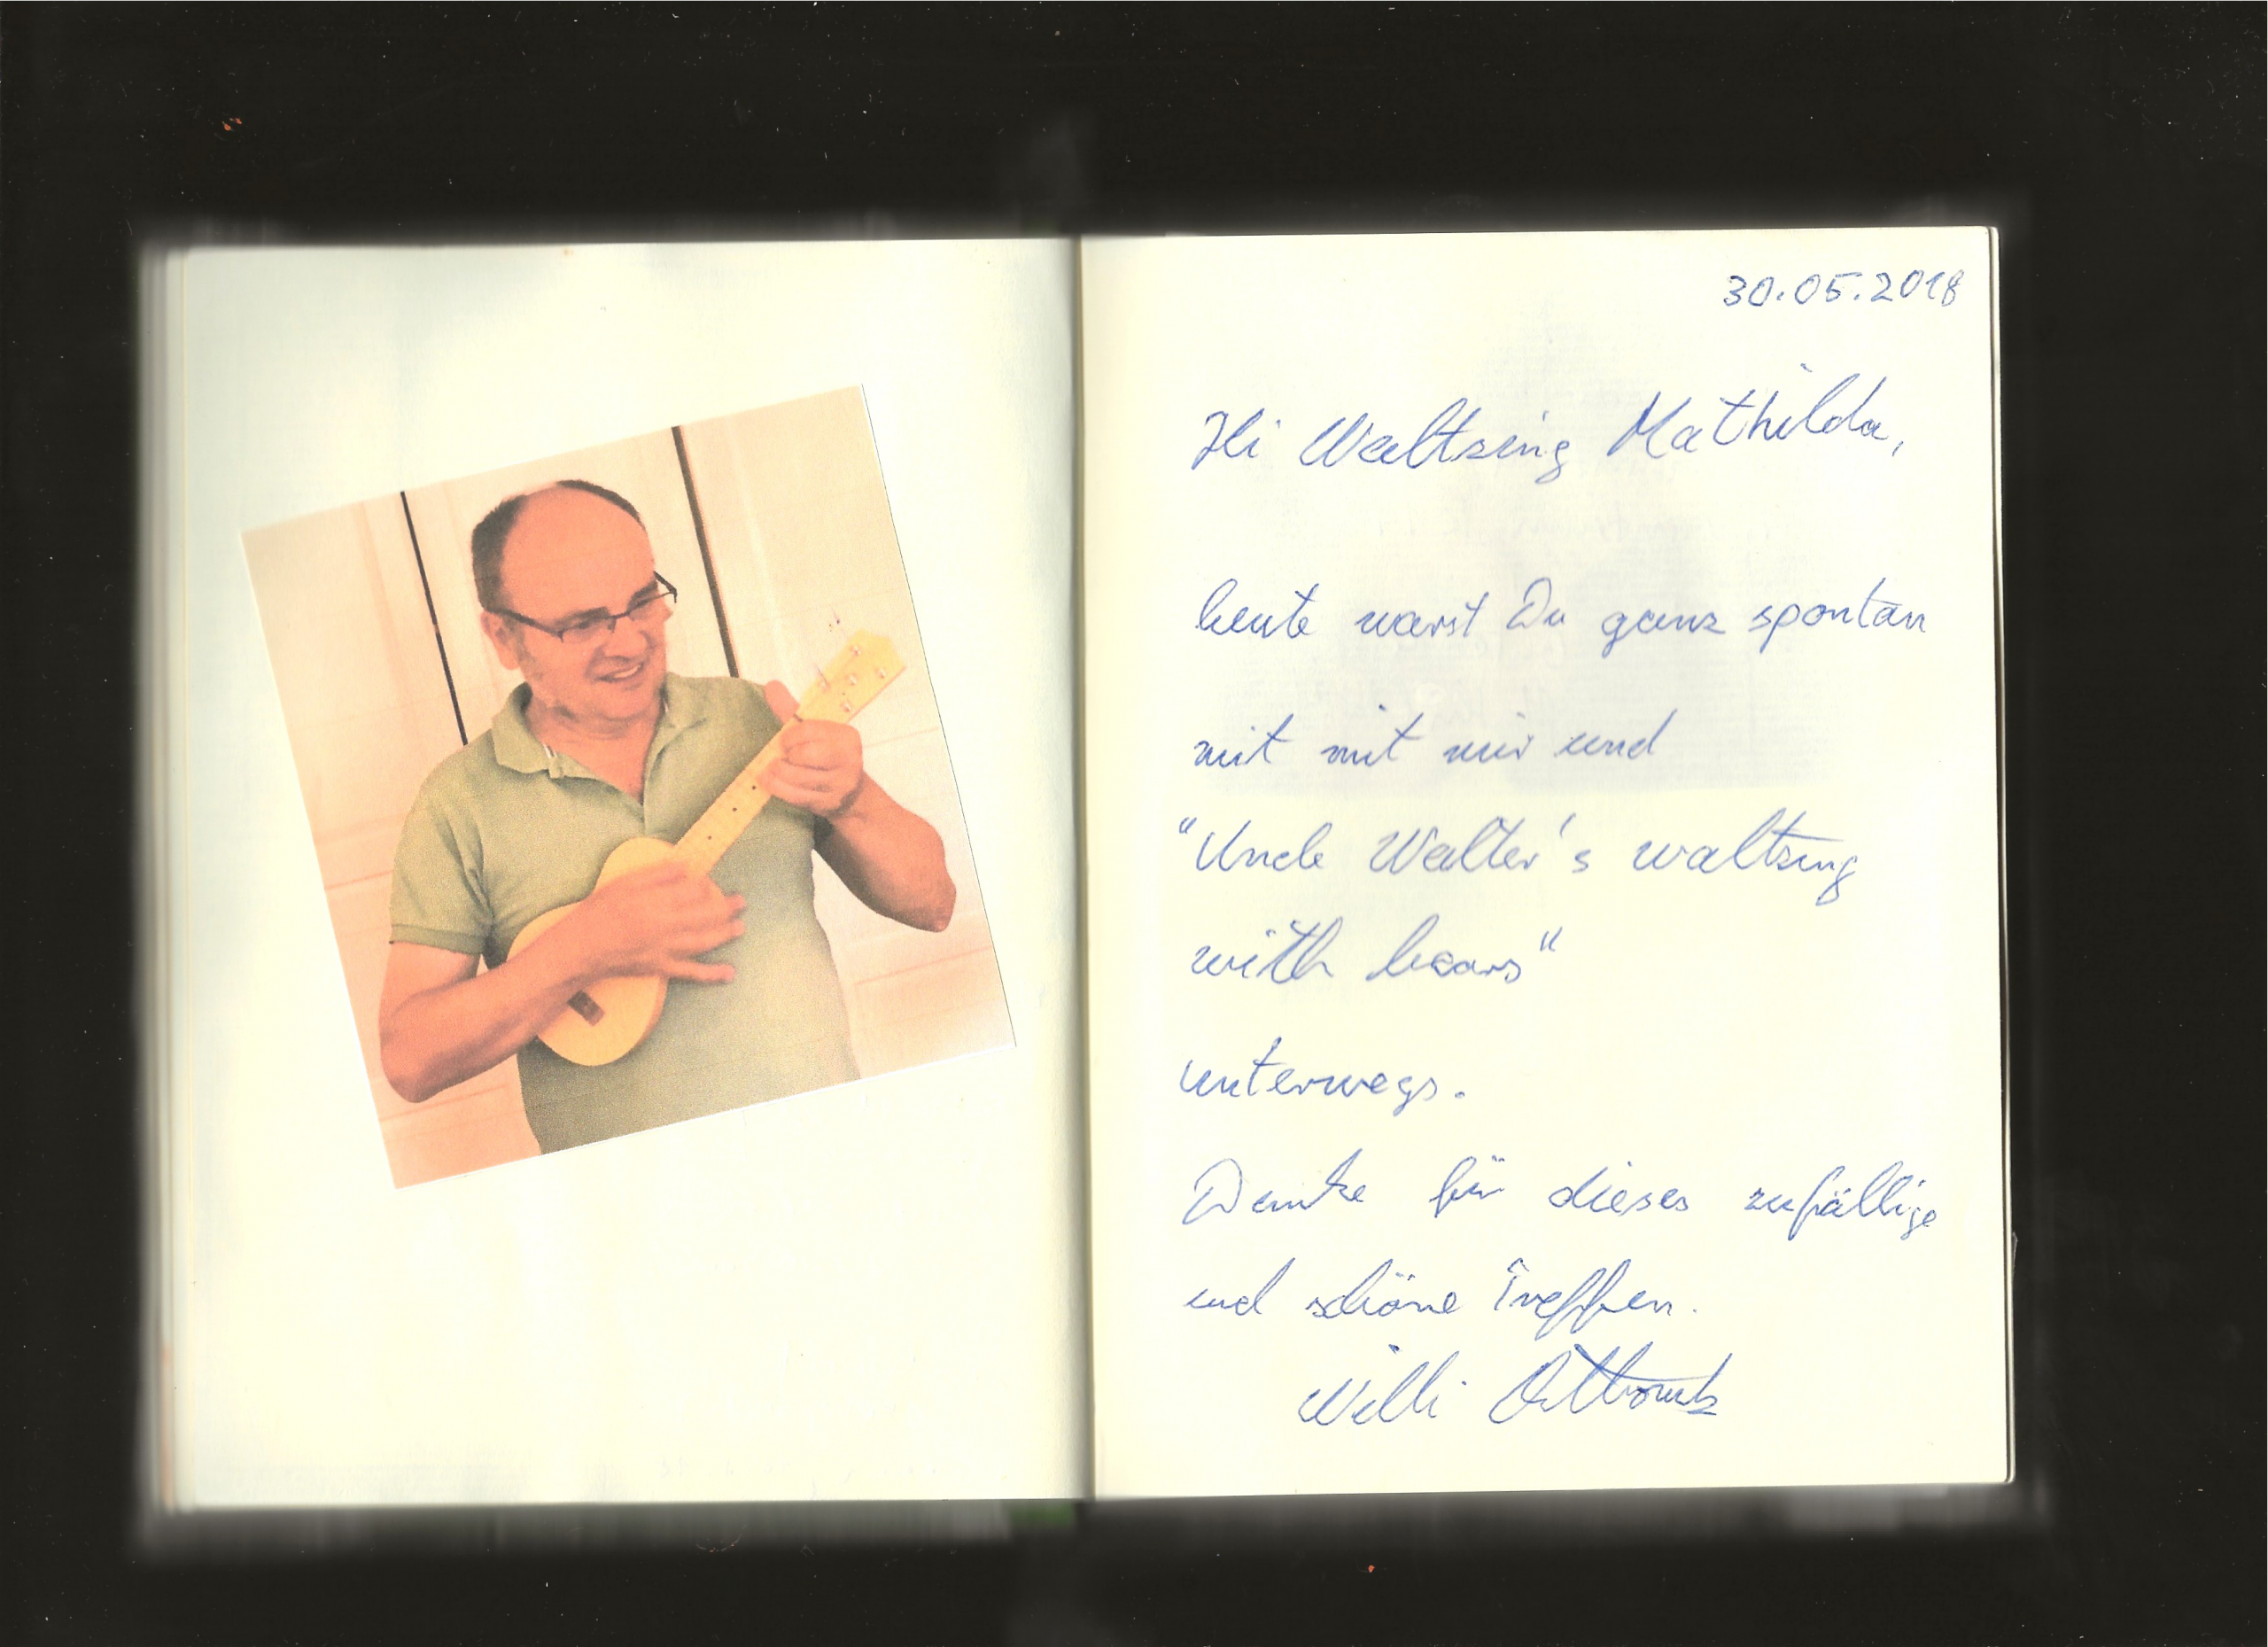 30.05.2018
Hi Waltzing Mathilda,
heute warst Du ganz spontan
mit mit mir und
"Uncle Walter's waltzing
with bears"
unterwegs.
Danke für dieses zufällige
und schöne Treffen.
Willi